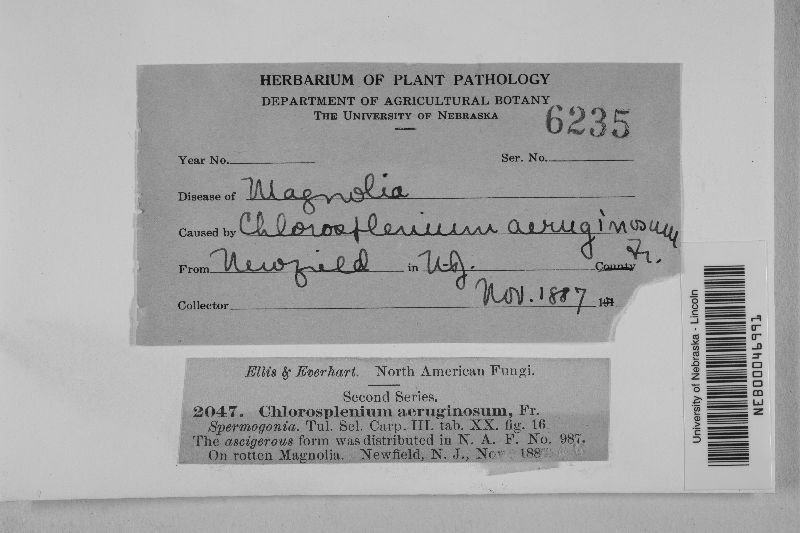 HERBARIUM OF PLANT PATHOLOGY
DEPARTMENT OF AGRICULTURAL BOTANY
THE UNIVERSITY OF NEBRASKA
6235
Year No. Ser. No.
Disease of Magnolia
Caused by Chlorosplenium aeruginosum
Fr.
From Newfield in N.J. County
Collector Nov. 1887
Ellis & Everhart. North American Fungi.
Second Series.
2047. Chlorosplenium aeruginosum, Fr.
Spermogonia. Tul. Sel. Carp. III. tab. XX. fig. 16
The ascigerous form was distributed in N. A. F. No. 987.
On rotten Magnolia. Newfield, N. J., Nov 1887
University of Nebraska - Lincoln
NEB00046991